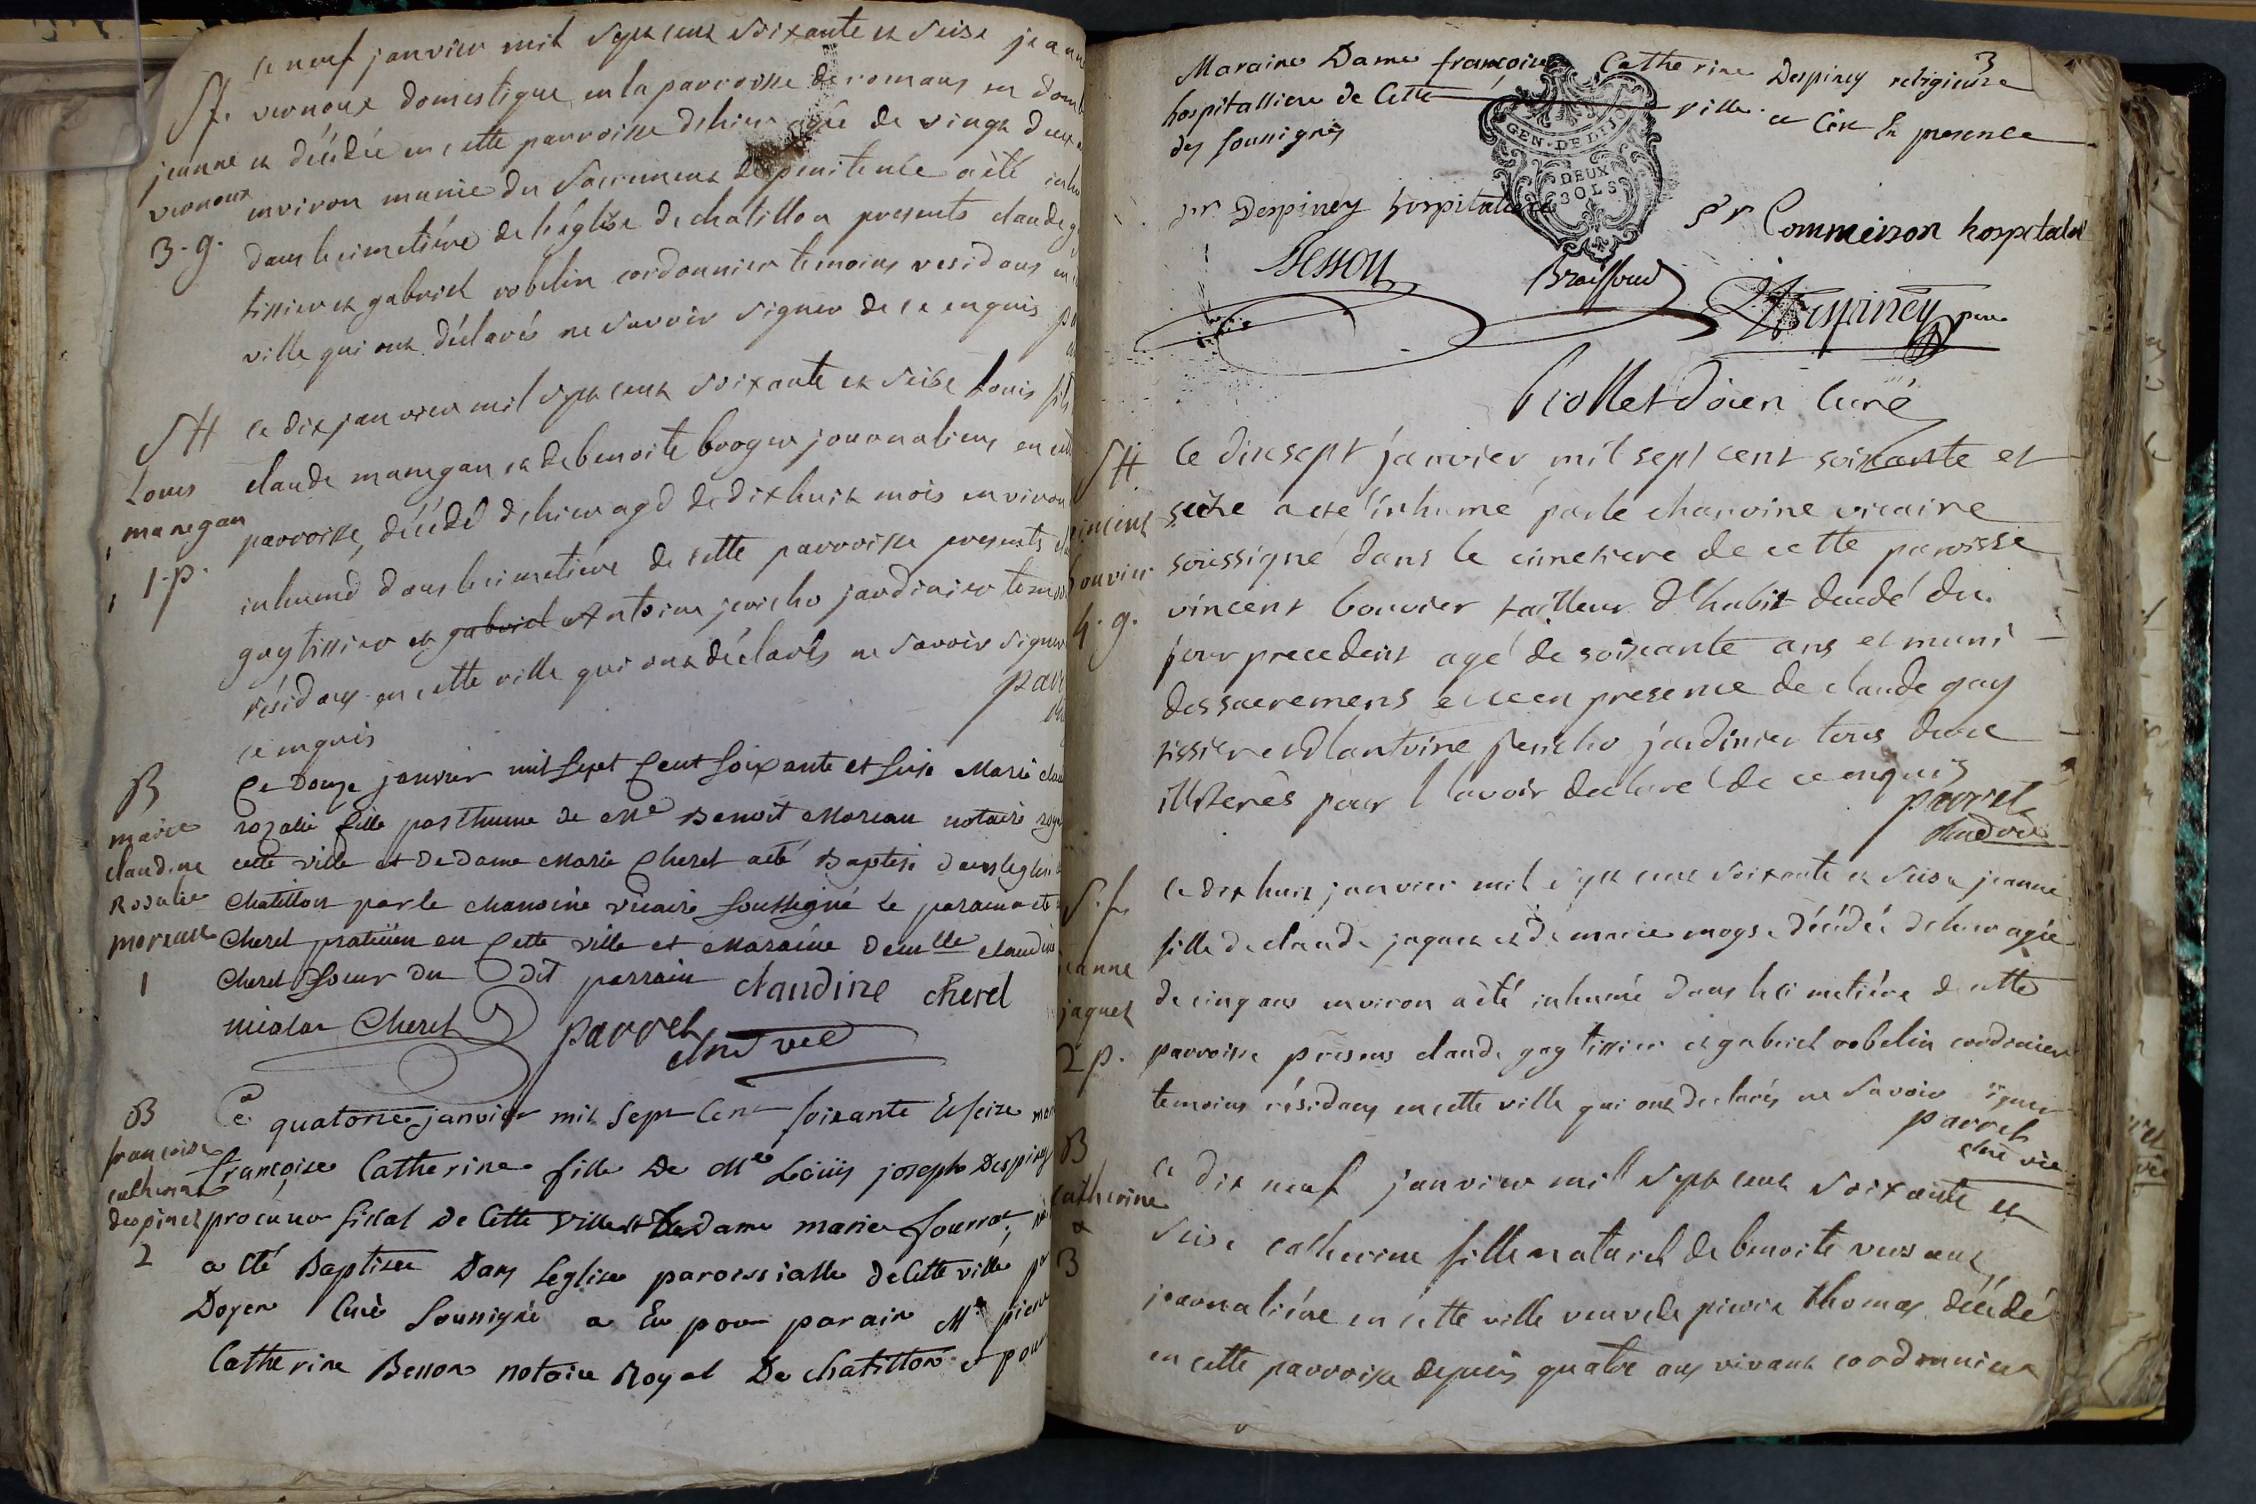 ce neuf janvier mil sept cent soixante et seise jeann
Sf. vernoux domestique en la parroisse de romans en domb
jeanne est décédée en cette parroisse dehier agée de vingt deux
vernoux environ munie du Sacrement de penitence a été inhu
3. g. dans le cimetiére de l'église de chatillon presents claude g
tissier et gabriel robelin cordonnier temoins residans en
ville qui ont déclarés ne Savoir Signer de ce enquis
SH ce dix janvier mil sept cent soixante et seise Louis fils
Louis claude manegan et de benoite broger journaliers en cett
manegan parroisse, décédé dehier agé de dixhuit mois environ
1. p. inhumé dans le cimetiére de cette parroisse presents
guy tissier et gabriel Antoine jericho jardinier temoi
résidans en cette ville qui ont déclarés ne Savoir Signer
ce enquis
B Ce Douze janvier mil Sept Cent Soixante et Seise Marie clau
marie rozalie fille posthume de Me Benoit Moreau notaire roya
claudine cette ville et De Dame Marie Cheret a été Baptisé dans leglise
Rosalie Chatillon par le chanoine vicaire Soussigné le parain a été
moreau Cheret praticien en Cette ville et Maraine demlle claudine
1 Cheret Soeur du dit parrain claudine cheret
nicolas Cheret parret chne vic
B Ce quatorze janvier mil Sept Cent soixante Et seize
francoise françoise Catherine fille De Me Loüis joseph Despiney
catherine
despiney procureur fiscal De Cette Ville et De dame marie fourrat,
2 a été Baptisée Dans Leglise paroissialle de Cette ville
Doyen Curé Soussigné a Eu pour parain Me pierre
Catherine Besson notaire Royal De chatillon et pour
3
Maraine Dame françoise Catherine Despiney religieuse
hospitalliere de Cette ville et Ce En presence
des soussignés
GEN. DE DIJON
DEUX
SOLS
Sr Despiney hospitaliere Sr Commerson hospitaliere
Besson Braissoud Despiney pere
Viollet Doien Curé
SH Ce dix sept janvier mil sept cent soixante et
vincent seize a eté inhumé par le chanoine vicaire
soussigné dans le cimetiere de cette paroisse
bouvier vincent bouvier tailleur d'habit decedé du
4. g. jour precedent agé de soixante ans et muni
des sacremens et ce en presence de claude guy
tissier et d'antoine jericho jardinier tous deux
illiterés pour l'avoir declaré de ce enquis
parret
chne vic
S.f. ce dix huit janvier mil sept cent soixante et seise jeanne
fille de claude jaquet et de marie moyse décédée dehier agée
jeanne de cinq ans environ a été inhumé dans le cimetiére de cette
jaquet
2 p. parroisse presens claude guy tissier et gabriel robelin cordonier
temoins résidans en cette ville qui ont declarés ne Savoir signer
parret
chne vic
B ce dix neuf janvier mil sept cent soixante et
catherine seise catherine fille naturel de benoite
3 journaliére en cette ville veuve de pierre thomas décédé
en cette parroisse depuis quatre ans vivant cordonnier